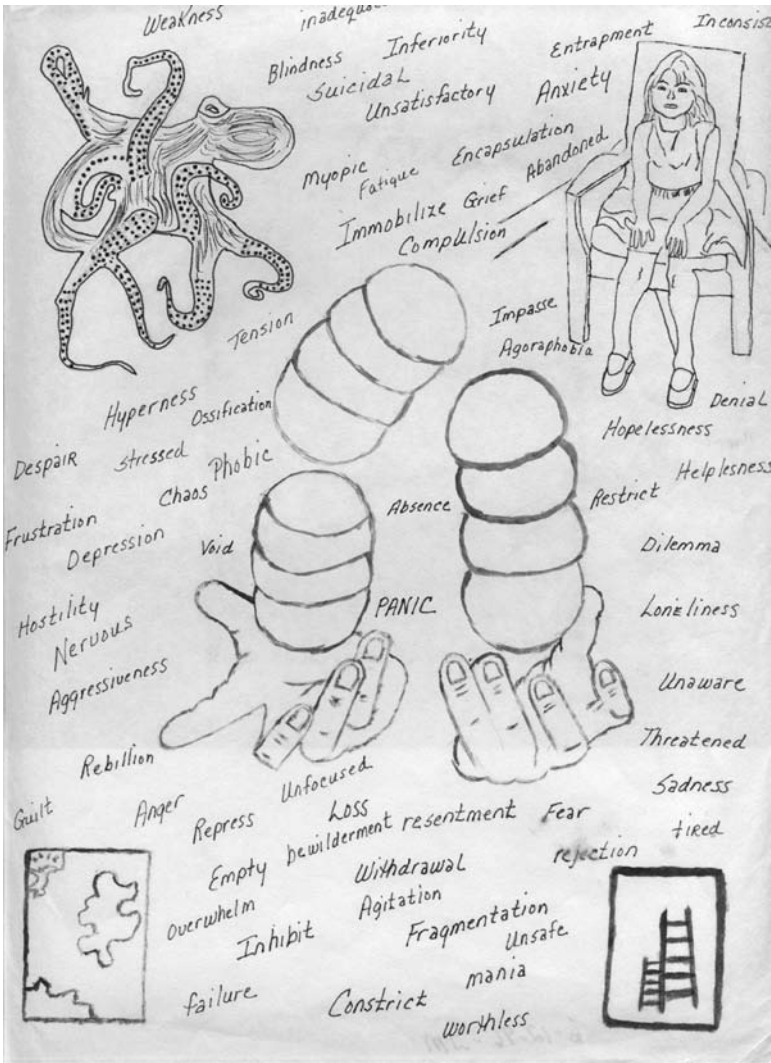 Weakness
Inferiority
Blindness
Entrapment
Suicidal
Unsatisfactory
Anxiety
Myopic
Fatique
Encapsulation
Abandoned
Immobilize
Grief
Compulsion
Tension
Impasse
Agoraphobia
Hyperness
Ossification
Denial
Hopelessness
Despair
stressed
Phobic
Helplesness
Chaos
Absence
Restrict
Frustration
Depression
Void
Dilemma
PANIC
Lonliness
Hostility
Nervous
Aggressiveness
Unaware
Threatened
Rebillion
Unfocused
Sadness
Guilt
Anger
Repress
Loss
bewilderment
resentment
Fear
tired
Empty
Withdrawal
rejection
overwhelm
Agitation
Inhibit
Fragmentation
Unsafe
failure
Constrict
mania
worthless